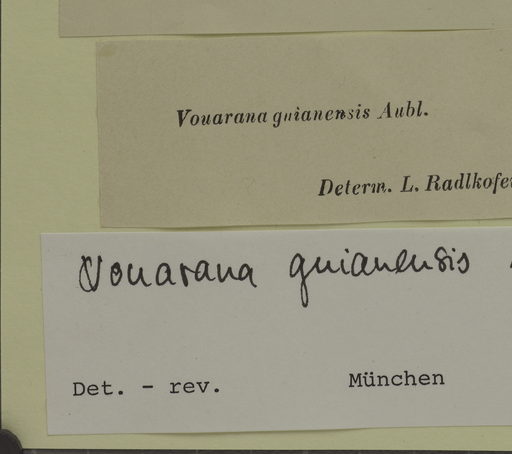 Vouarana guianensis Aubl.
Determ. L. Radlkofer
Vouarana guianensis
Det. - rev. München